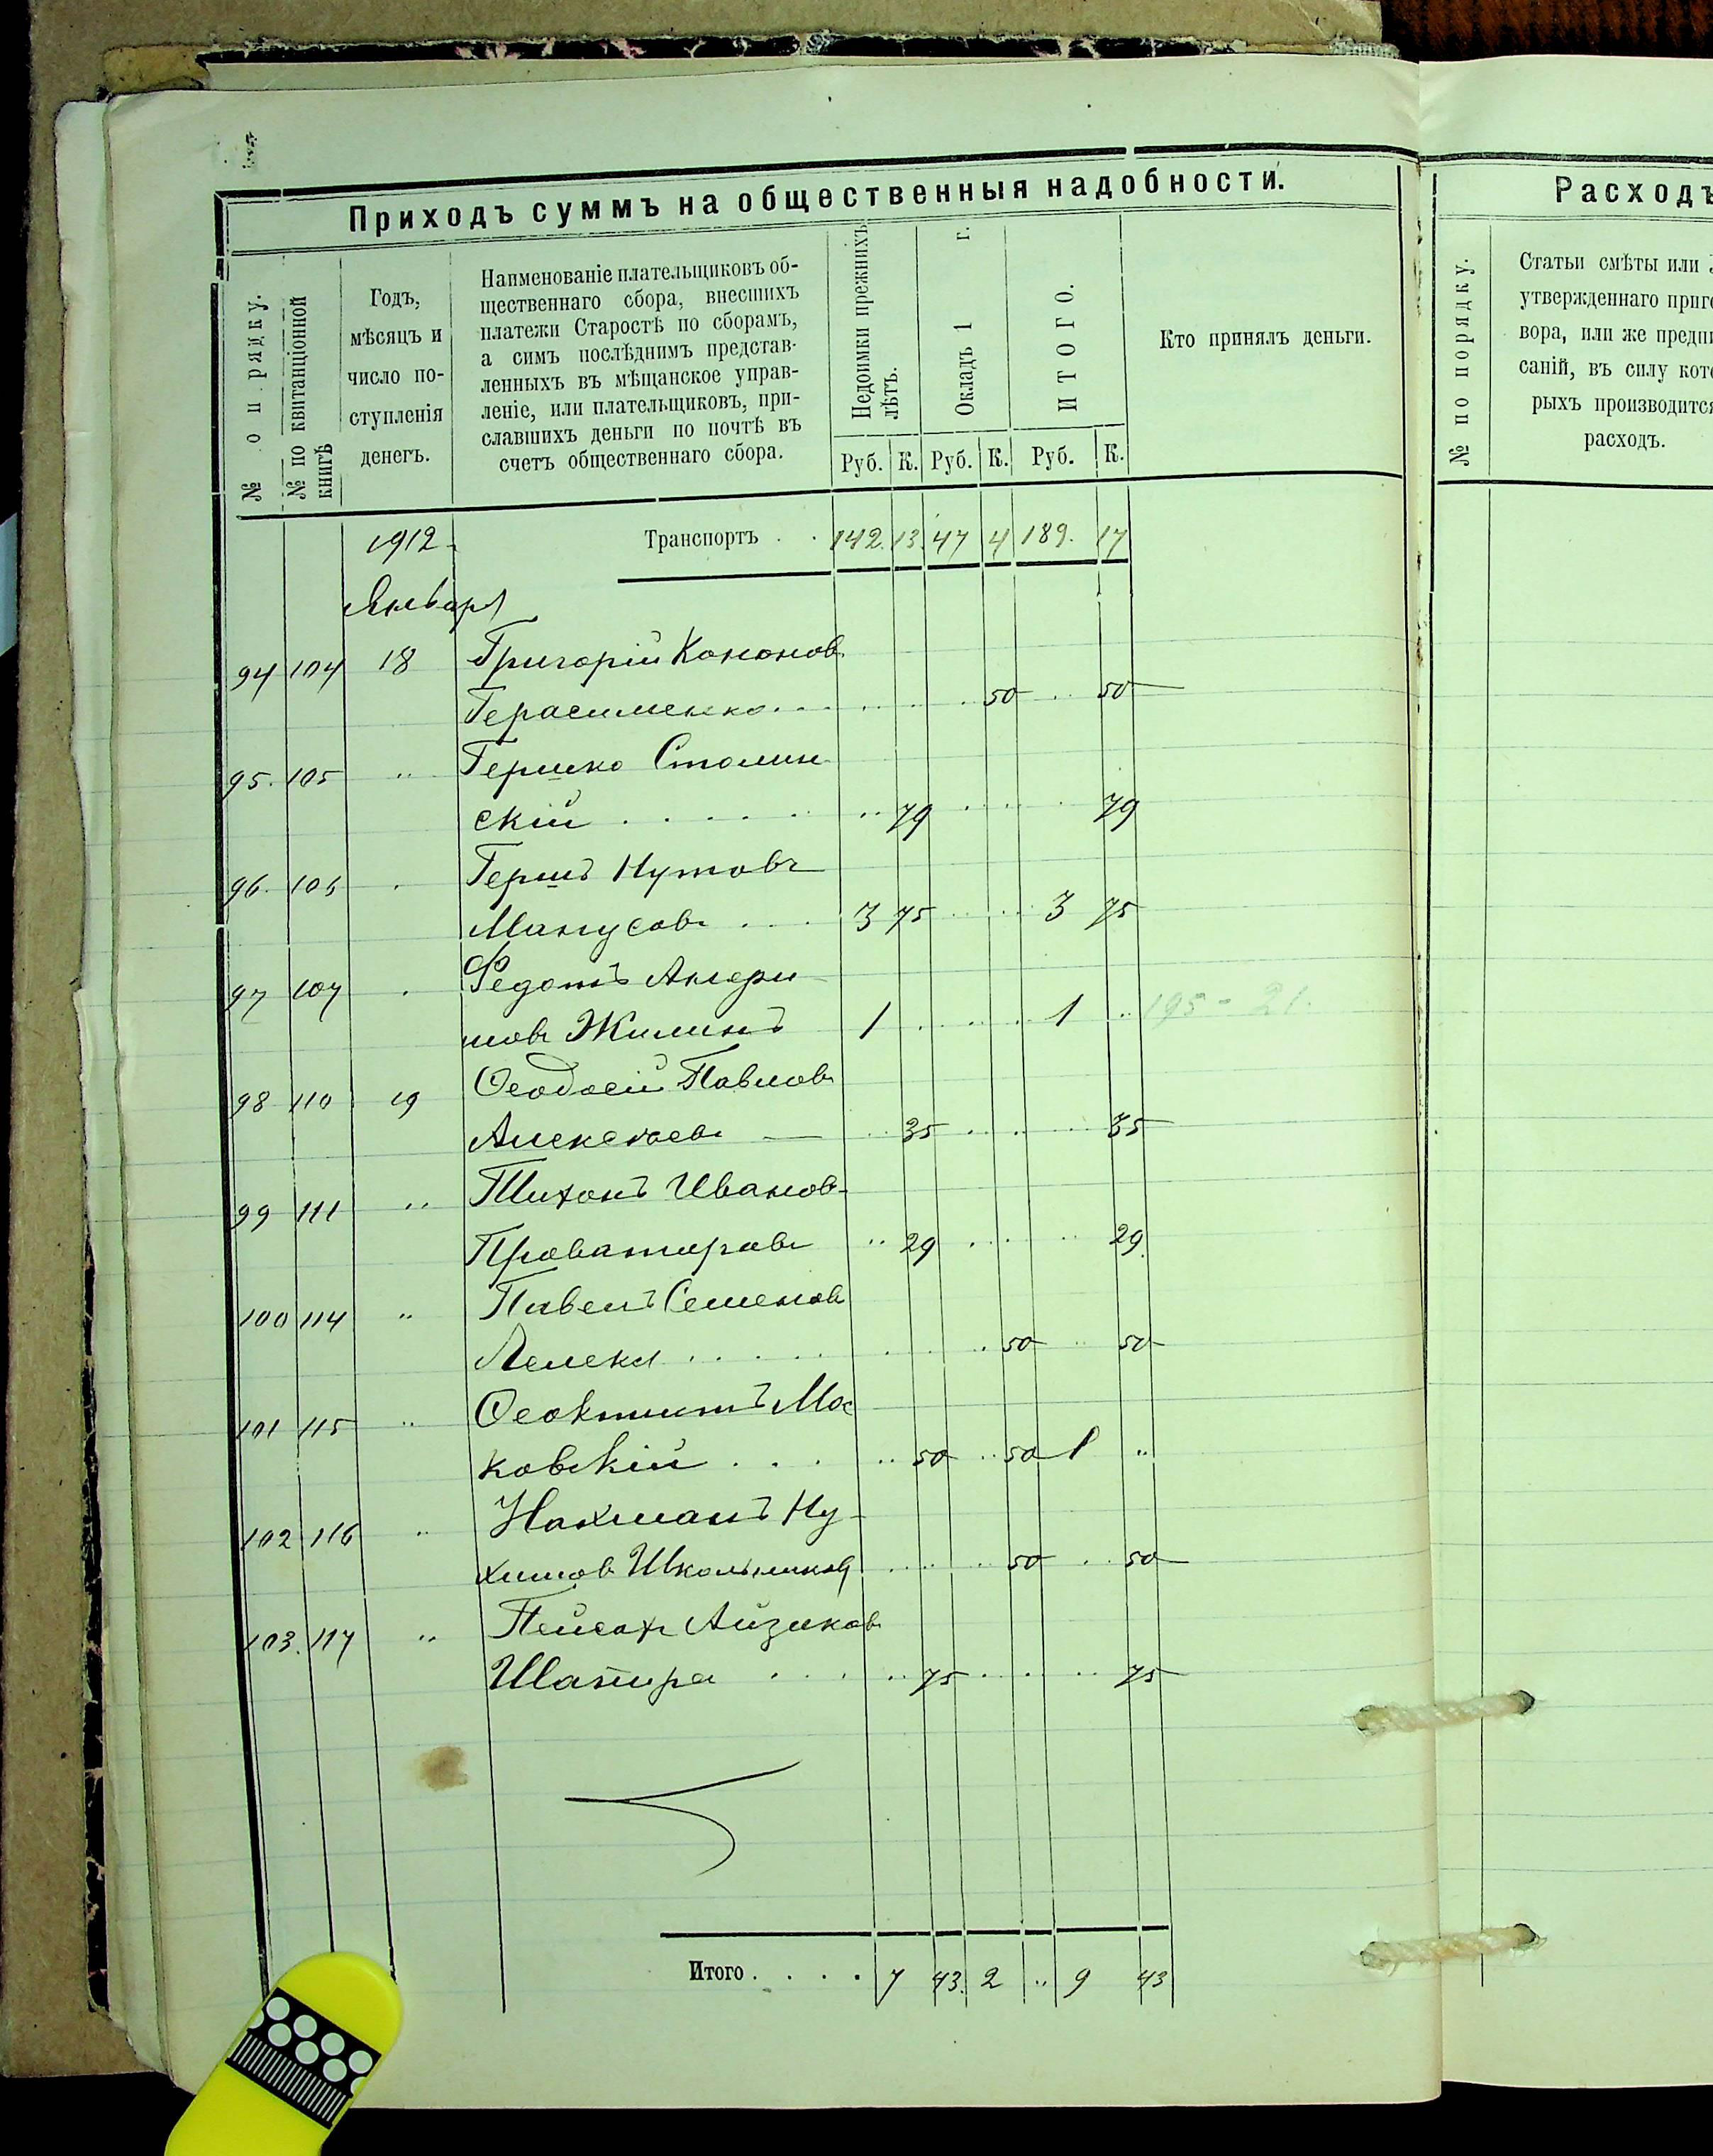 Приходъ суммъ на общественныя надобности.
№ по рядку.
№ по квитанціонной книгѣ
Годъ,
мѣсяцъ и
число по-
ступленія
денегъ.
Наименованіе плательщиковъ об-
щественнаго сбора, внесшихъ
платежи Старостѣ по сборамъ,
а симъ послѣднимъ представ-
ленныхъ въ мѣщанское управ-
леніе, или плательщиковъ, при-
славшихъ деньги по почтѣ въ
счетъ общественнаго сбора.
Недоимки прежнихъ
лѣтъ.
Окладъ 1 г.
ИТОГО.
Руб. К. Руб. К. Руб. К.
Кто принялъ деньги.
1912 Транспортъ . . 142. 13. 47 4 189. 17
Января
94 104 18 Григорій Кононов
Герасименко . . . 50 . . 50
95. 105 " Гершко Столин
скій . . . . . 79 . . . 79
96. 106 Гершъ Нутовъ
Манусов . . . 3 75 . . . 3 75
97 107 Федотъ
Жилинъ 1 . . . 1 .. 195-21.
98 110 19 Ѳеодосій Павлов
Алексѣев — .. 35 . . . 35
99 111 " Тихонъ Иванов
Проваторов " 29 . . . 29.
100 114 " Павелъ Семенов
Лелека . . . . . 50 .. 50
101 115 " Ѳеоктистъ Мос
ковскій . . . .. 50 .. 50 1 "
102 116 " Нахманъ Ну-
химов Школьников . . . 50 . . 50
103. 117 " Пейсах Айзиков
Шапира . . . .. 75 . . . 75
Итого . . . . 7 43. 2 .. 9 43
Расходъ
№ по порядку.
Статьи смѣты или
утвержденнаго приго
вора, или же предпи
саній, въ силу кото
рыхъ производится
расходъ.